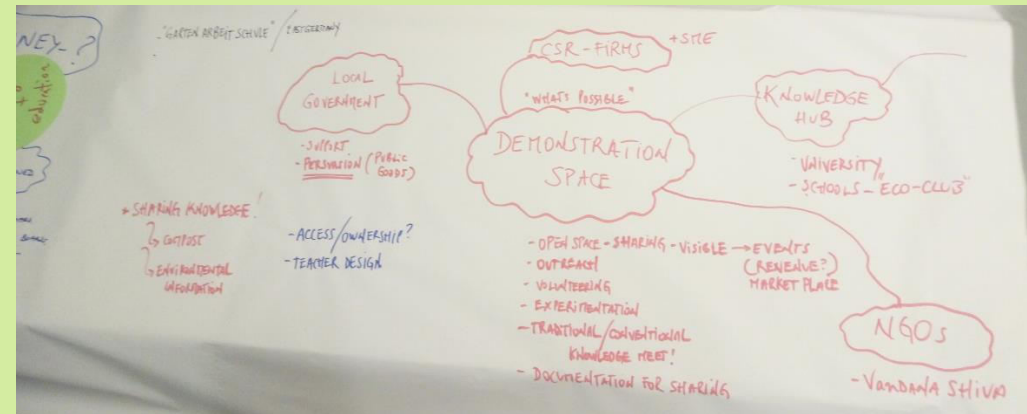 NEY-?
education
"GARTEN ARBEIT SCHULE" / EAST GERMANY
LOCAL
GOVERNMENT
- SUPPORT
- PERSUASION (PUBLIC
GOODS)
CSR-FIRMS
+ SME
"WHATS POSSIBLE"
DEMONSTRATION
SPACE
KNOWLEDGE
HUB
- UNIVERSITY,
- SCHOOLS - ECO-CLUB"
SHARING KNOWLEDGE!
COMPOST
ENVIRONMENTAL
INFORMATION
- ACCESS/OWNERSHIP?
- TEACHER DESIGN
- OPEN SPACE - SHARING - VISIBLE → EVENTS
(REVENUE?)
MARKET PLACE
- OUTREACH
- VOLUNTEERING
- EXPERIMENTATION
- TRADITIONAL/CONVENTIONAL
KNOWLEDGE MEET!
- DOCUMENTATION FOR SHARING
NGOs
- VANDANA SHIVA